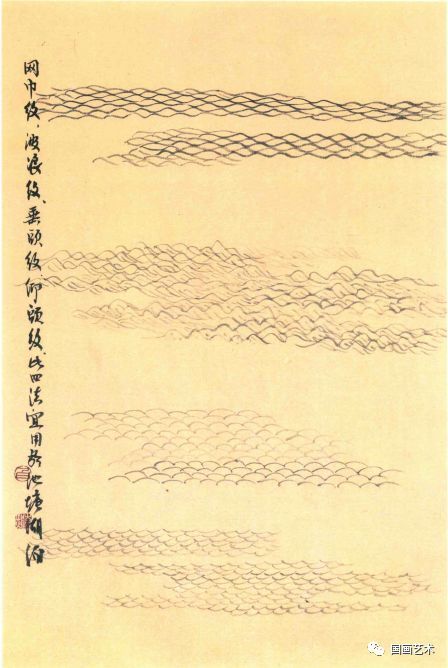 网巾纹、波浪纹、垂头纹、仰头纹、此四法宜用于池塘湖泊
国画艺术